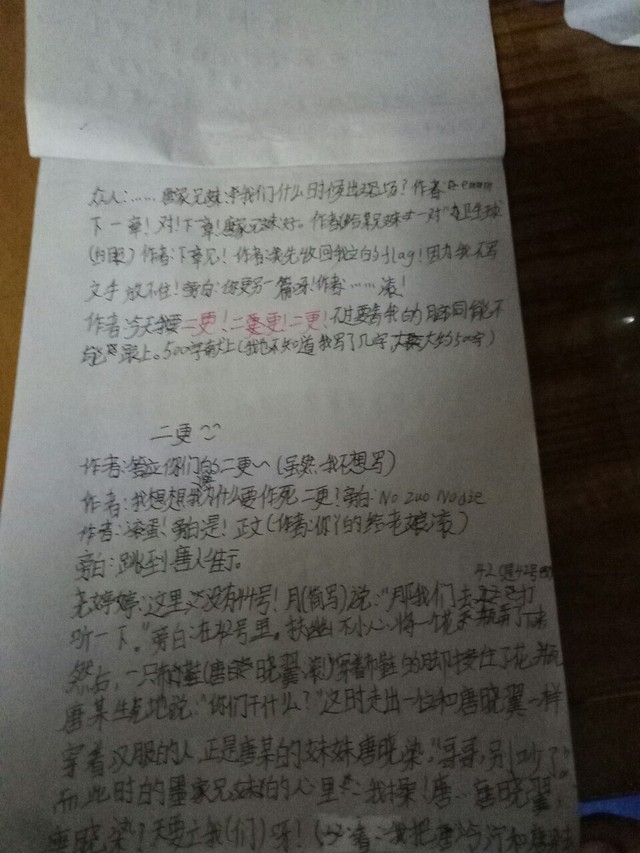 众人：……唐家兄妹：我们什么时候出现场？作者：
下一章！对！下章！唐家兄妹好。作者：给某兄妹一对“卫生球”
(白眼) 作者：下章见！作者：我先收回我立的flag！因为我不写
文手放不住！旁白：你更另一篇呀！作者：……滚！
作者：今天我要二更！二更！二更！不过要看我的脑洞能不
能跟上。500字献上(我也不知道我写了几字大概500字)
二更
作者：答应你们的二更～(虽然我不想写)
作者：我想想我为什么要作死二更？旁白：No zuo No die
作者：滚蛋！旁白：是！正文(作者：你丫的给老娘滚)
旁白：跳到唐人街。
42(是42号
尧婷婷：“这里又没有44号！月(简写)说：“那我们去打
听一下。”旁白：在42号里。扶幽不小心将一个花瓶弄了下来
然后，一只布鞋(唐晓翼：滚！)穿着布鞋的脚接住了花瓶
唐某生气地说：“你们干什么？”这时走出一位和唐晓翼一样
穿着汉服的人，正是唐某的妹妹唐晓染，“哥哥，别吵了。”
而此时的墨家兄妹的心里：我操！唐…唐晓翼，
唐晓染？天要亡我(们)呀！(：我把唐